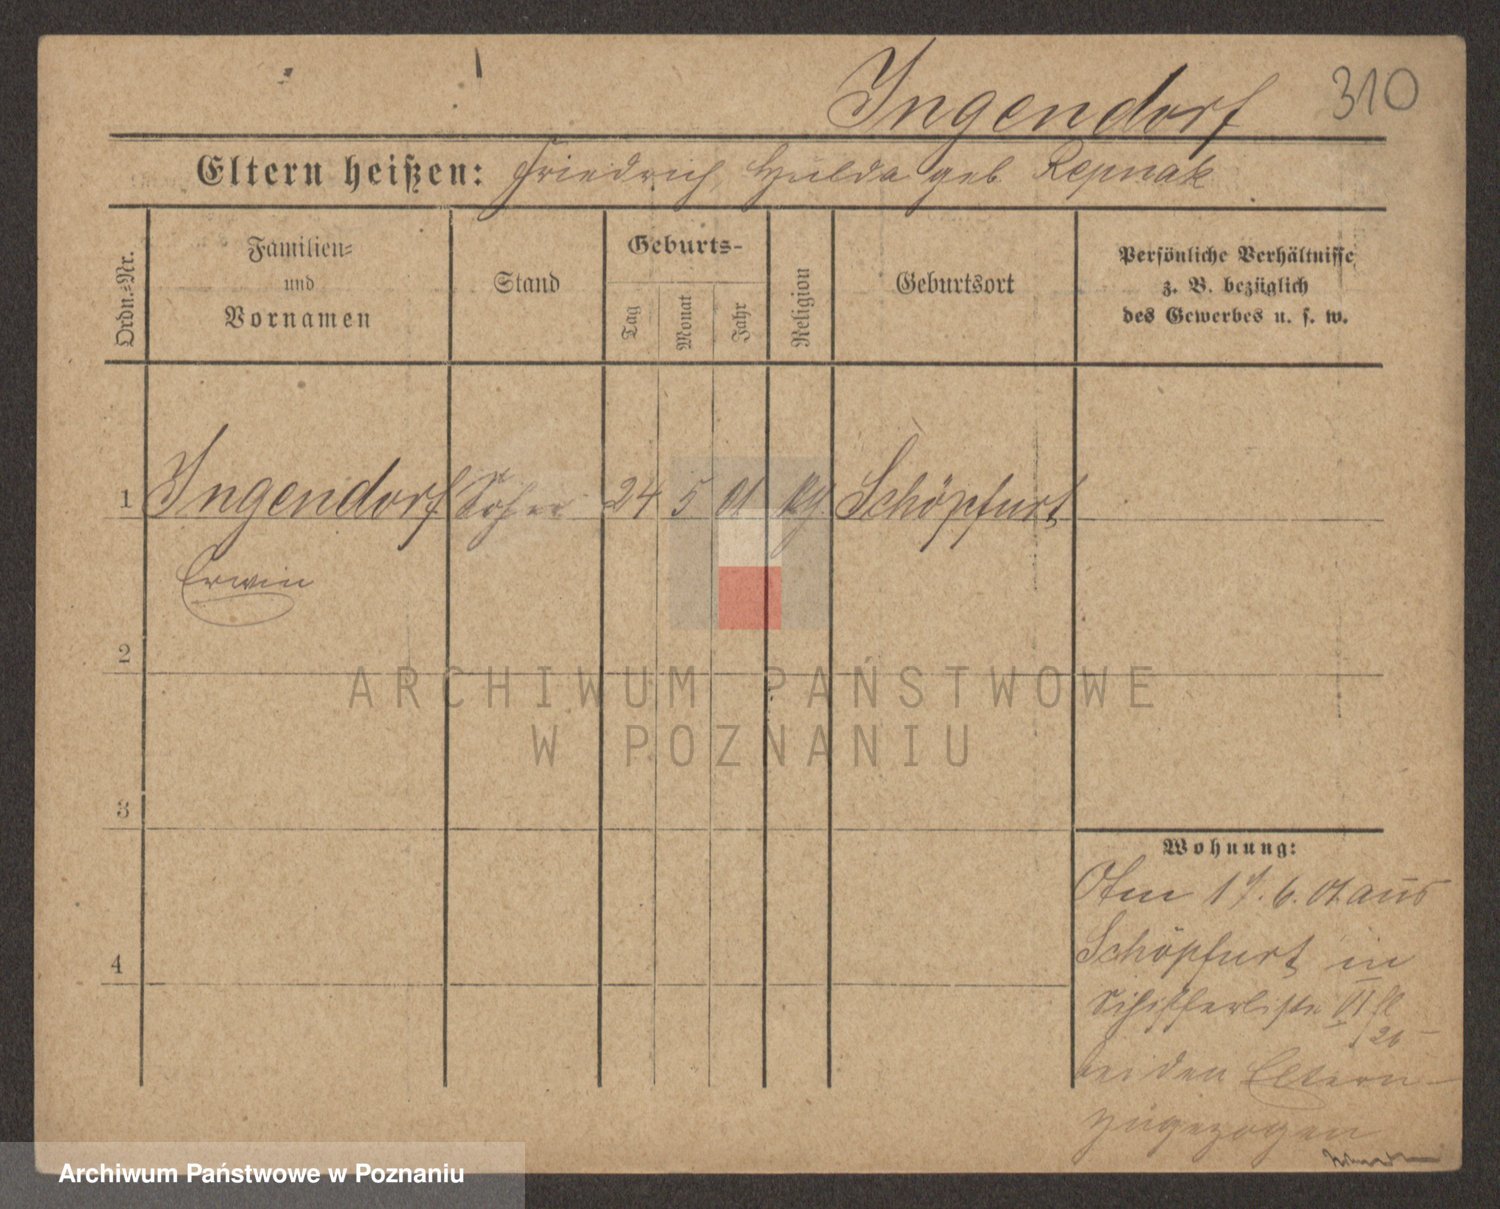 Ingendorf 310
Eltern heißen: Friedrich Hulda geb. Repnak
Ordn.-Nr.
Familien-
und
Vornamen
Stand
Geburts-
Tag
Monat
Jahr
Religion
Geburtsort
Persönliche Verhältnisse
z. B. bezüglich
des Gewerbes u. s. w.
1 Ingendorf 24 5 01 Schöpfurt
Erwin
2
ARCHIWUM PAŃSTWOWE
W POZNANIU
3
Wohnung:
Am 17. 6. 01 aus
Schöpfurt in
4
Schifferliste VI
26
bei den Eltern
zugezogen
Archiwum Państwowe w Poznaniu